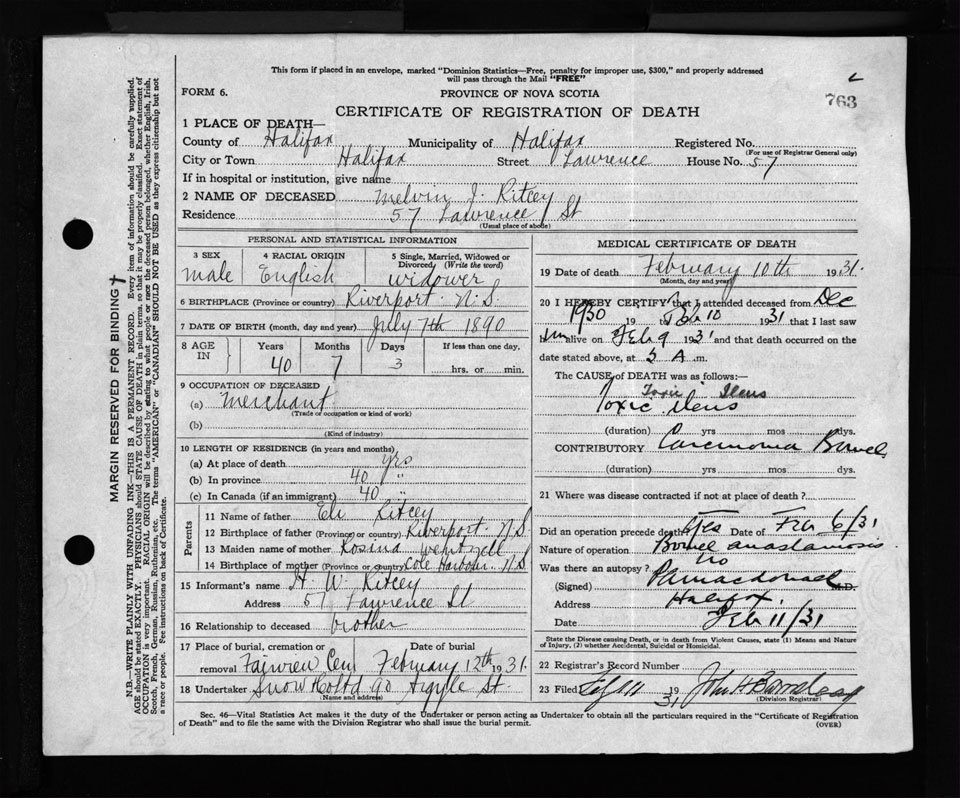 This form if placed in an envelope, marked "Dominion Statistics—Free, penalty for improper use, $300," and properly addressed
will pass through the Mail "FREE"
FORM 6.
PROVINCE OF NOVA SCOTIA
763
CERTIFICATE OF REGISTRATION OF DEATH
1 PLACE OF DEATH—
County of Halifax Municipality of Halifax Registered No.
(For use of Registrar General only)
City or Town Halifax Street Lawrence House No. 57
If in hospital or institution, give name
2 NAME OF DECEASED Melvin J. Ritcey
Residence 57 Lawrence St
(Usual place of abode)
PERSONAL AND STATISTICAL INFORMATION
3 SEX 4 RACIAL ORIGIN 5 Single, Married, Widowed or
Divorced (Write the word)
male English widower
6 BIRTHPLACE (Province or country) Riverport. N.S.
7 DATE OF BIRTH (month, day and year) July 7th 1890
8 AGE IN Years Months Days If less than one day,
40 7 3 hrs. or min.
9 OCCUPATION OF DECEASED
(a) Merchant
(Trade or occupation or kind of work)
(b)
(Kind of industry)
10 LENGTH OF RESIDENCE (in years and months)
(a) At place of death yrs
(b) In province 40 "
(c) In Canada (if an immigrant) 40 "
Parents
11 Name of father Eli Ritcey
12 Birthplace of father (Province or country) Riverport. N.S.
13 Maiden name of mother Rosina Wentzell
14 Birthplace of mother (Province or country) Cole Harbour. N.S
15 Informant's name H. W. Ritcey
Address 57 Lawrence St
16 Relationship to deceased brother
17 Place of burial, cremation or Date of burial
removal Fairview Cem February 12th 1931.
18 Undertaker Snow Co Ltd 90 Argyle St.
(Name and address)
MEDICAL CERTIFICATE OF DEATH
19 Date of death February 10th 1931.
(Month, day and year)
20 I HEREBY CERTIFY that I attended deceased from Dec
1930 19 to Feb 10 1931 that I last saw
him alive on Feb 9 1931 and that death occurred on the
date stated above, at 3 A.m.
The CAUSE of DEATH was as follows:—
Toxic Ileus
Toxic ileus
(duration) yrs mos dys.
CONTRIBUTORY Carcinoma Bowel
(duration) yrs mos. dys.
21 Where was disease contracted if not at place of death?
Did an operation precede death? Yes Date of Feb 6/31
Nature of operation Bowel anastamosis
Was there an autopsy? no
(Signed) M.D.
Address Halifax.
Date Feb 11/31
State the Disease causing Death, or in death from Violent Causes, state (1) Means and Nature
of Injury, (2) whether Accidental, Suicidal or Homicidal.
22 Registrar's Record Number
23 Filed 1931 John H.
(Division Registrar)
Sec. 46—Vital Statistics Act makes it the duty of the Undertaker or person acting as Undertaker to obtain all the particulars required in the "Certificate of Registration
of Death" and to file the same with the Division Registrar who shall issue the burial permit.
(OVER)
MARGIN RESERVED FOR BINDING
N.B.—WRITE PLAINLY WITH UNFADING INK—THIS IS A PERMANENT RECORD. Every item of information should be carefully supplied.
AGE should be stated EXACTLY. PHYSICIANS should STATE CAUSE OF DEATH in plain terms, so that it may be properly classified. Exact statement of
OCCUPATION is very important. RACIAL ORIGIN will be described by stating to what people or race the deceased person belonged, whether English, Irish,
Scotch, French, German, Russian, Ruthenian, etc. The terms "AMERICAN" or "CANADIAN" SHOULD NOT BE USED as they express citizenship but not
a race or people. See instructions on back of Certificate.